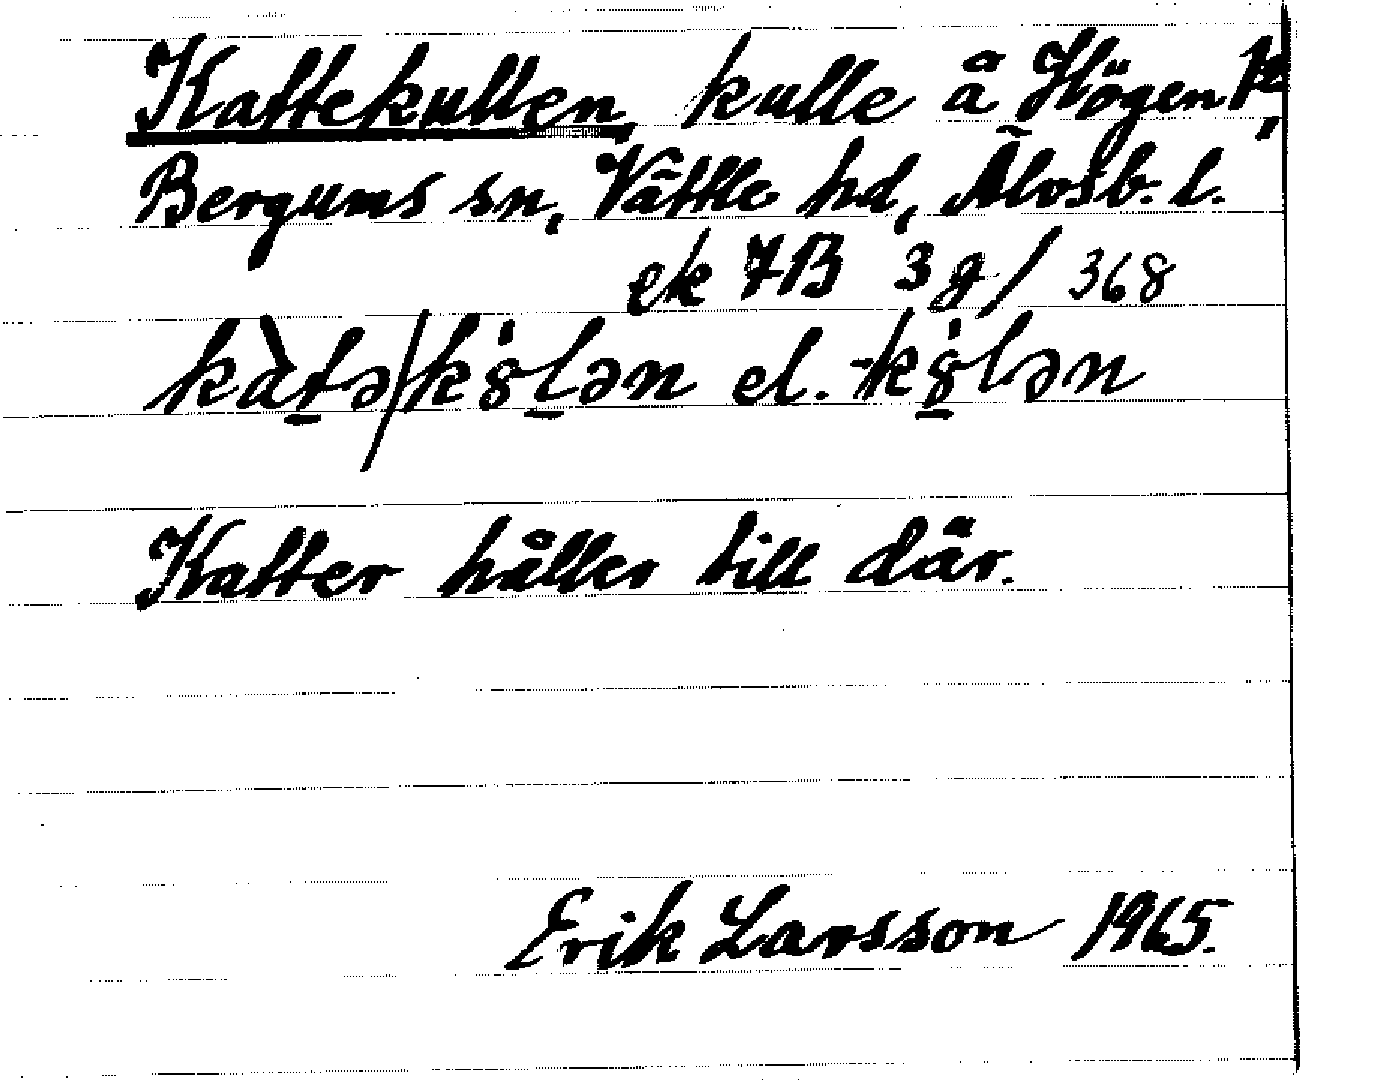 Kattekullen, kulle å Högen 12,
Bergums sn, Vättle hd, Älvsb. l.
ek 7B 3g/ 368
kàt̲ə/kȣ̍l̲ən el. -kȣ̲̍lən
Katter håller till där.
Erik Larsson 1965.